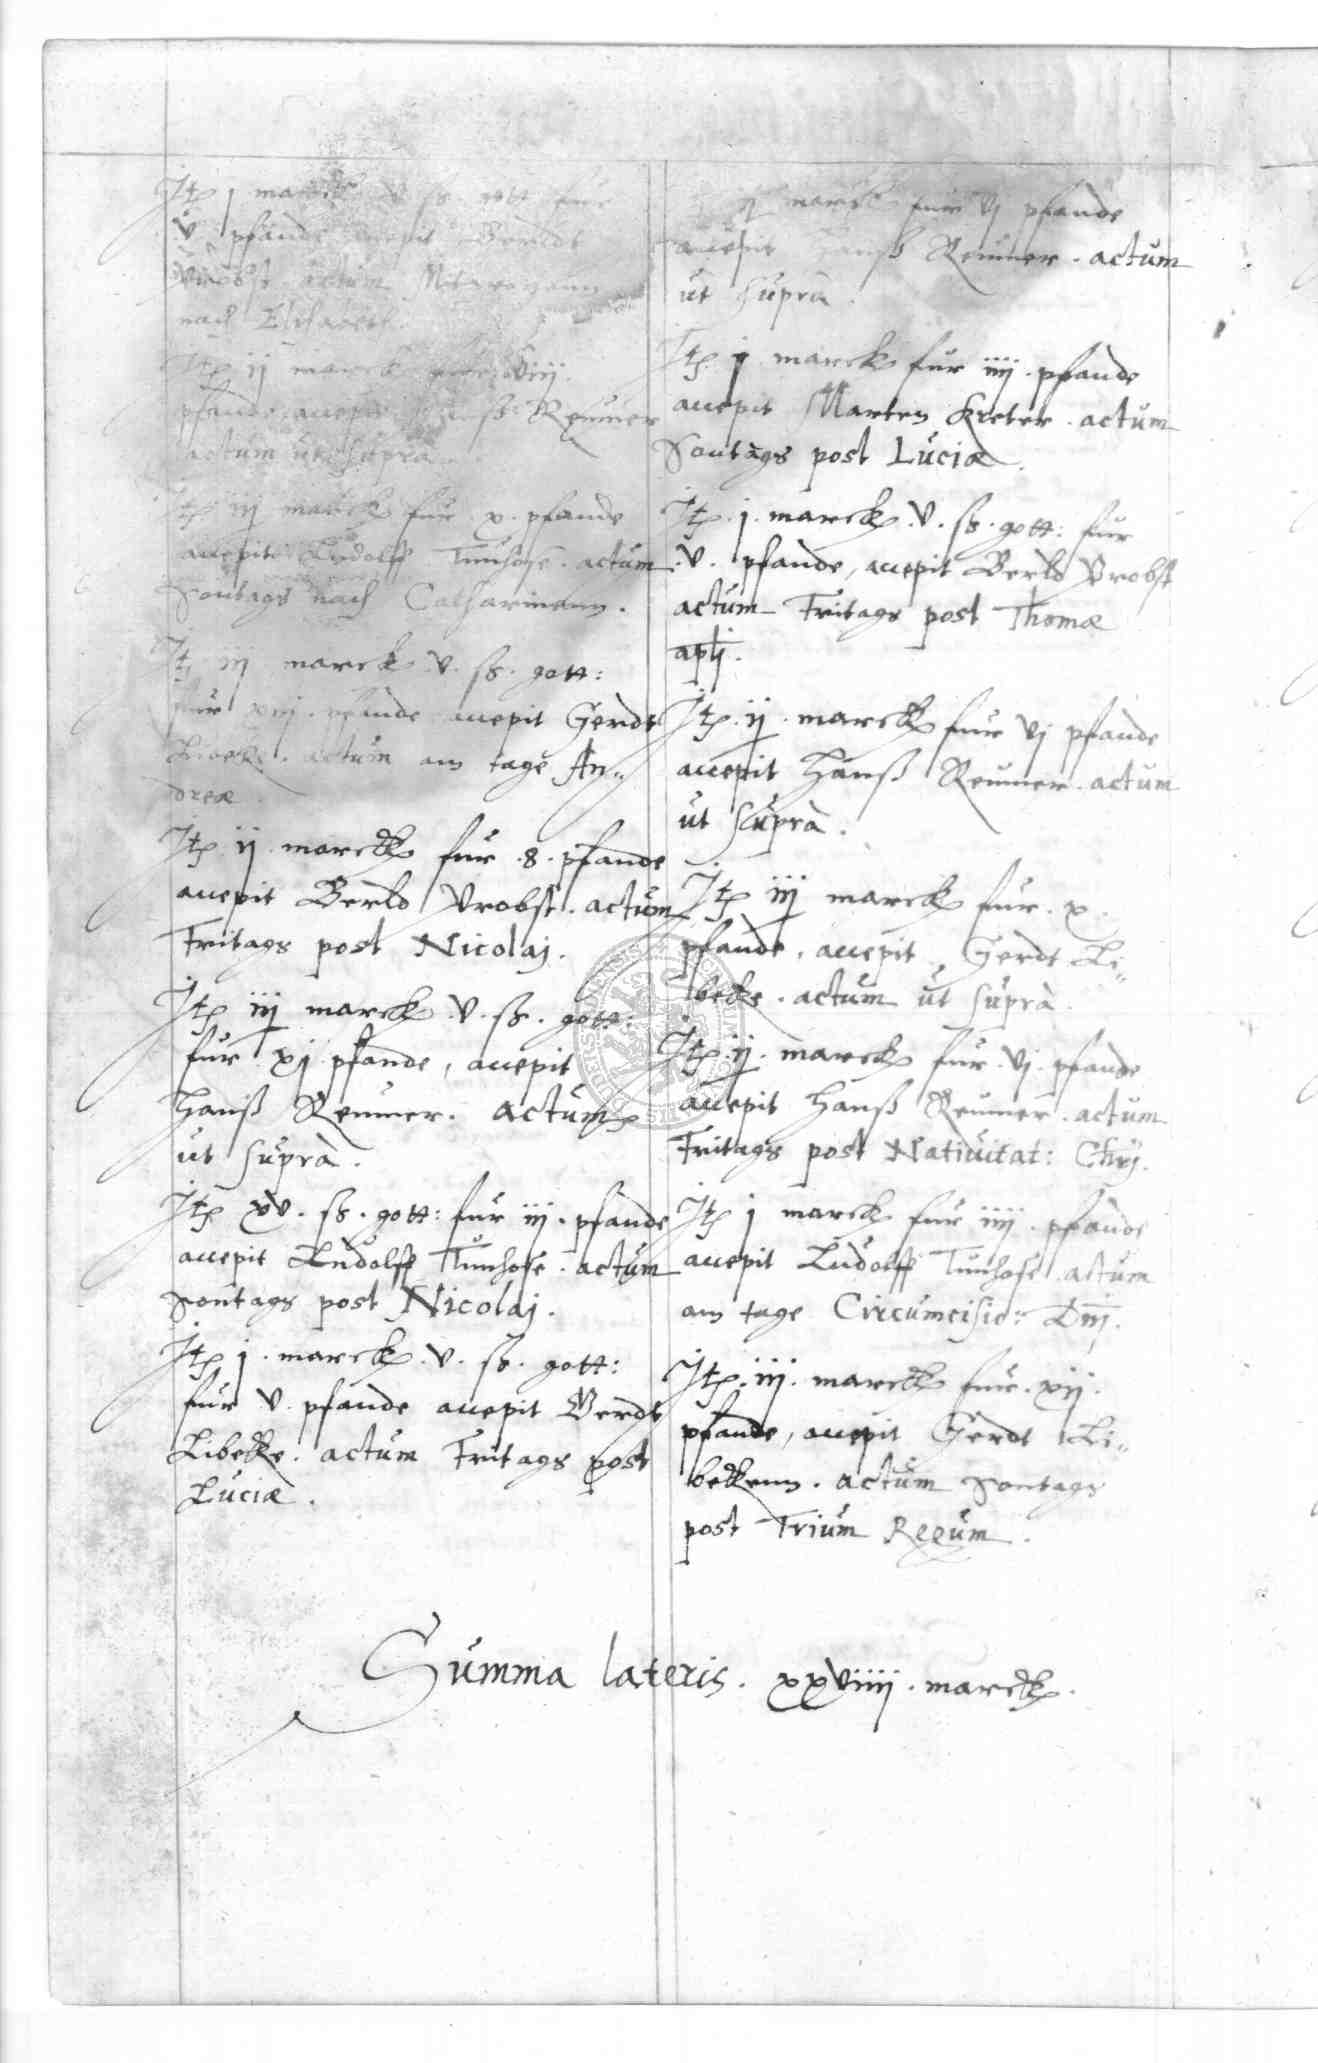 Itē j marck v ß gott für
v pfande accepit Berndt
Probst actum Mitwochenn
nach Elisabeth
Itē ij marck für viij
pfande accepit Hanß Reumer
actum ut supra
Itē iij marck für x pfande
accepit Ludolff Tunhose . actum
Sontags nach Catharinenn .
Itē iij marck v . ß . gott :
für xiij . pfande accepit Gerdt
Libecke . actum am tage An„
dreæ
Itē ij marck für . 8 . pfande
accepit Berld Probst . actum
Fritags post Nicolaj .
Itē iij marck v . ß . gott :
für xj pfande , accepit
Hanß Reumer . actum
ut supra .
Itē xv . ß . gott : für iij . pfande
accepit Ludolff Tunhose . actum
Sontags post Nicolaj .
Itē j . marck . v . ß . gott :
für v . pfande accepit Gerdt
Libecke . actum Fritags post
Luciæ .
ij marck für vj pfande
accepit Hanß Reumer . actum
ut supra .
Itē j marck für iiij . pfande
accepit Marten Kreter . actum
Sontags post Luciæ .
Itē . j . marck . v . ß . gott : für
. v . pfande , accepit Berld Probst
actum Fritags post Thomæ
aplj .
Itē . ij . marck für vj pfande
accepit Hanß Reumer . actum
ut supra .
Itē iij marck für . x .
pfande , accepit Gerdt Li„
becke . actum ut supra .
Itē . ij . marck für . vj . pfande
accepit Hanß Reumer . actum
Fritags post Natiuitat : Chrj .
Itē j marck für iiij . pfande
accepit Ludolff Tunhose . actum
am tage Circumcisio : Dnj .
Itē . iij . marck für . xij .
pfande , accepit Gerdt Li„
beckenn . actum Sontags
post Trium Regum .
Summa lateris . xxviiij . marck .